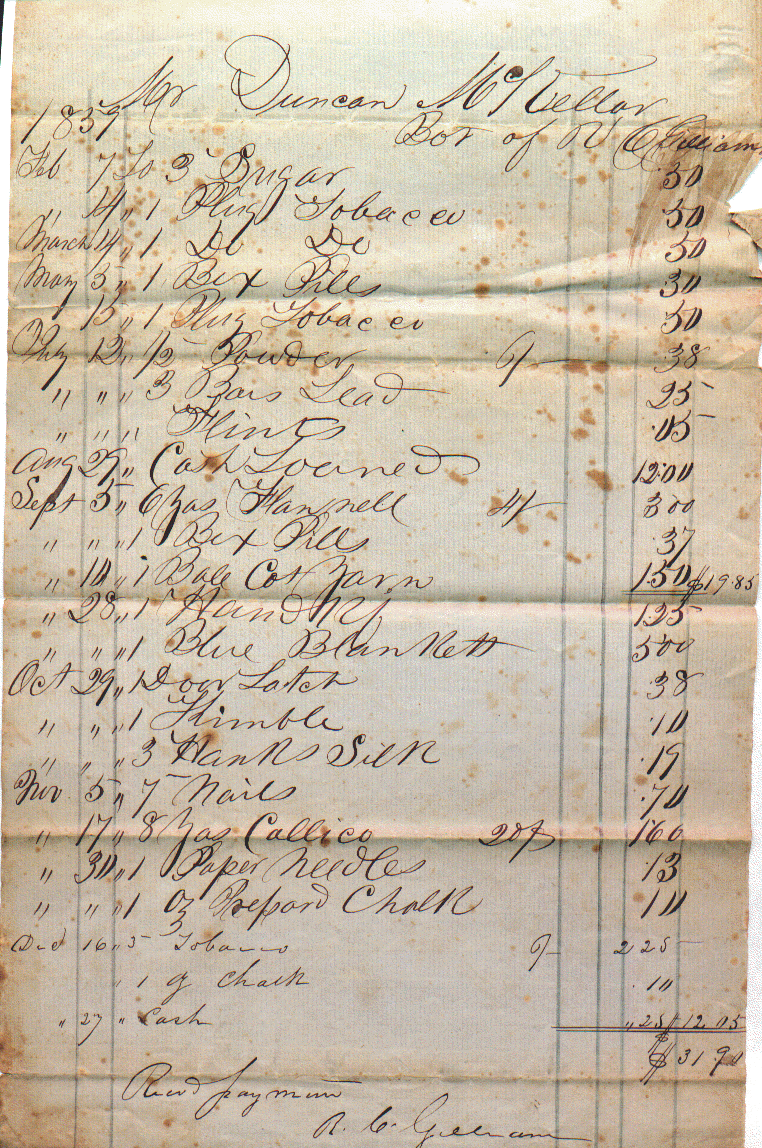 Mr Duncan McKellar
1839 Bot of R C Gilliam
Feb 7 To 3 Sugar 30
" 14 " 1 Plug Tobacco 50
March 14 " 1 Do Do 50
May 5 " 1 Box Pills 30
" 13 " 1 Plug Tobacco 50
12 " 1/2 Powder 6/ 38
" " " 3 Bars Lead 25
" " " Flints .05
Aug 29 " Cash Loaned 12.00
Sept 5 " 6 Yds Flannell 4/ 3 00
" " " 1 Box Pills .37
" 10 " 1 Bale Cot Yarn 1.50 $19.85
" 28 " 1 Hand Kf 1.25
" " " 1 Blue Blankett 5 00
Oct 29 " 1 Door Latch .38
" " " 1 Thimble .10
" " " 3 Hanks Silk .19
Nov 5 " 7 Nails .70
" 17 " 8 Yds Callico 20 1 60
" 30 " 1 Paper Needles .13
" " " 1 oz Prepard Chalk 10
Ded 16 " 5 Tobacco 2 25
" 1 Chalk .10
" 27 " Cash " 25 12 05
$ 31.90
Recd payment
R. C. Gilliam